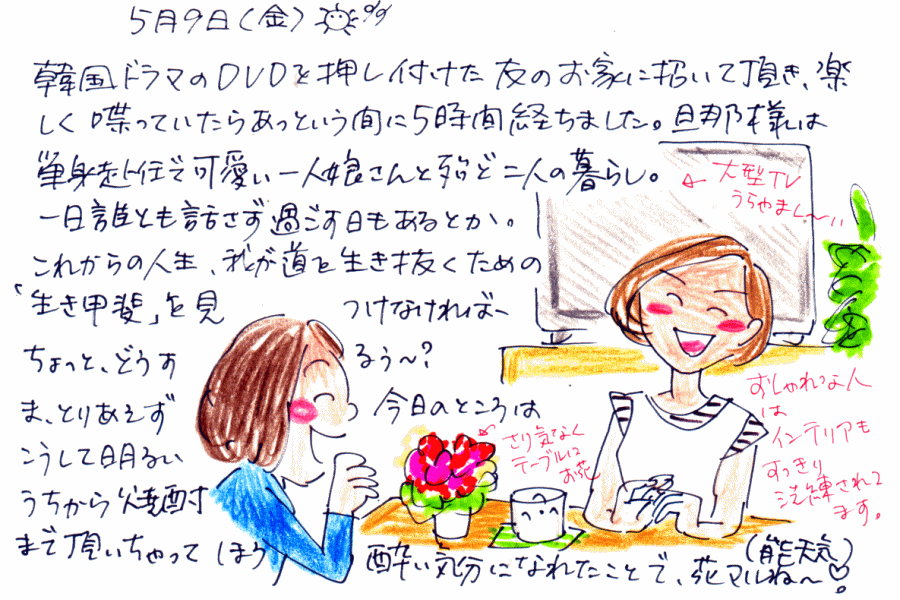 5月9日(金)
韓国ドラマのDVDを押し付けた友のお家に招いて頂き、楽
しく喋っていたらあっという間に5時間経ちました。旦那様は
単身赴任で可愛い一人娘さんと殆ど二人の暮らし。
一日誰とも話さず過ごす日もあるとか。
これからの人生、我が道を生き抜くための
「生き甲斐」を見つけなければー
ちょっと、どうするぅ〜?
ま、とりあえず今日のところは
こうして明るい
うちから焼酎
まで頂いちゃって ほろ酔い気分になれたことで、花マルね〜♡
(能天気)
←大型TV
うらやまし〜い
さり気なく
テーブルに
お花
おしゃれな人
は
インテリアも
すっきり
洗練されて
ます。